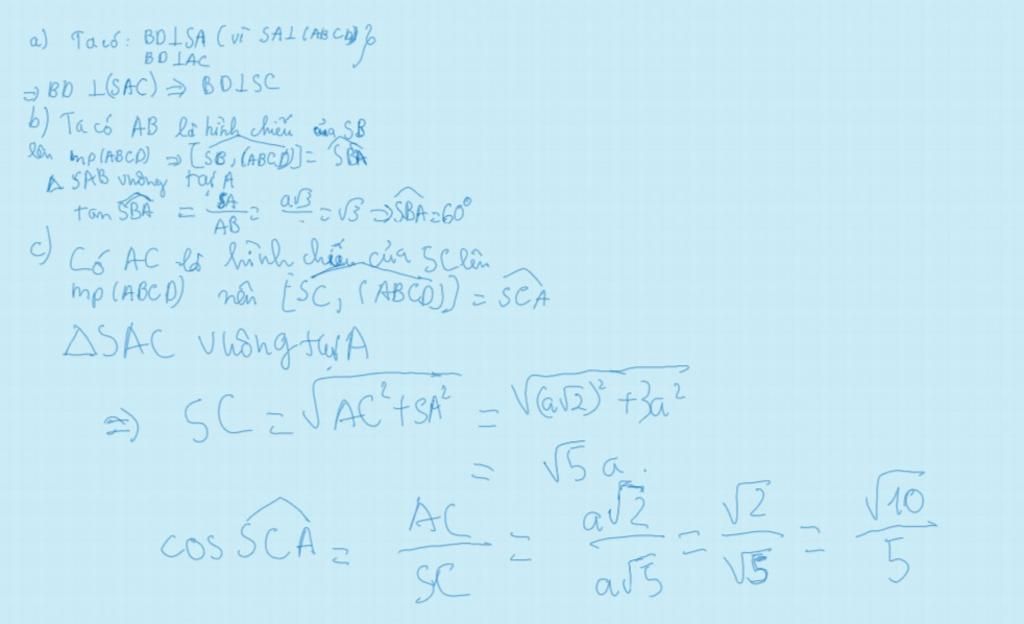 a) Ta có: BD⊥SA (vì SA⊥(ABCD)}
BD⊥AC
⇒ BD ⊥(SAC) ⇒ BD⊥SC
b) Ta có AB là hình chiếu của SB
lên mp(ABCD) ⇒ [SB,(ABCD)] = SBA
Δ SAB vuông tại A
tan SBA = SA/AB = a√3/. = √3 ⇒ SBA = 60°
c) Có AC là hình chiếu của SC lên
mp(ABCD) nên [SC, (ABCD)] = SCA
ΔSAC vuông tại A
⇒ SC = √(AC²+SA²) = √((a√2)²+3a²)
= √5 a.
cos SCA = AC/SC = a√2/a√5 = √2/√5 = √10/5